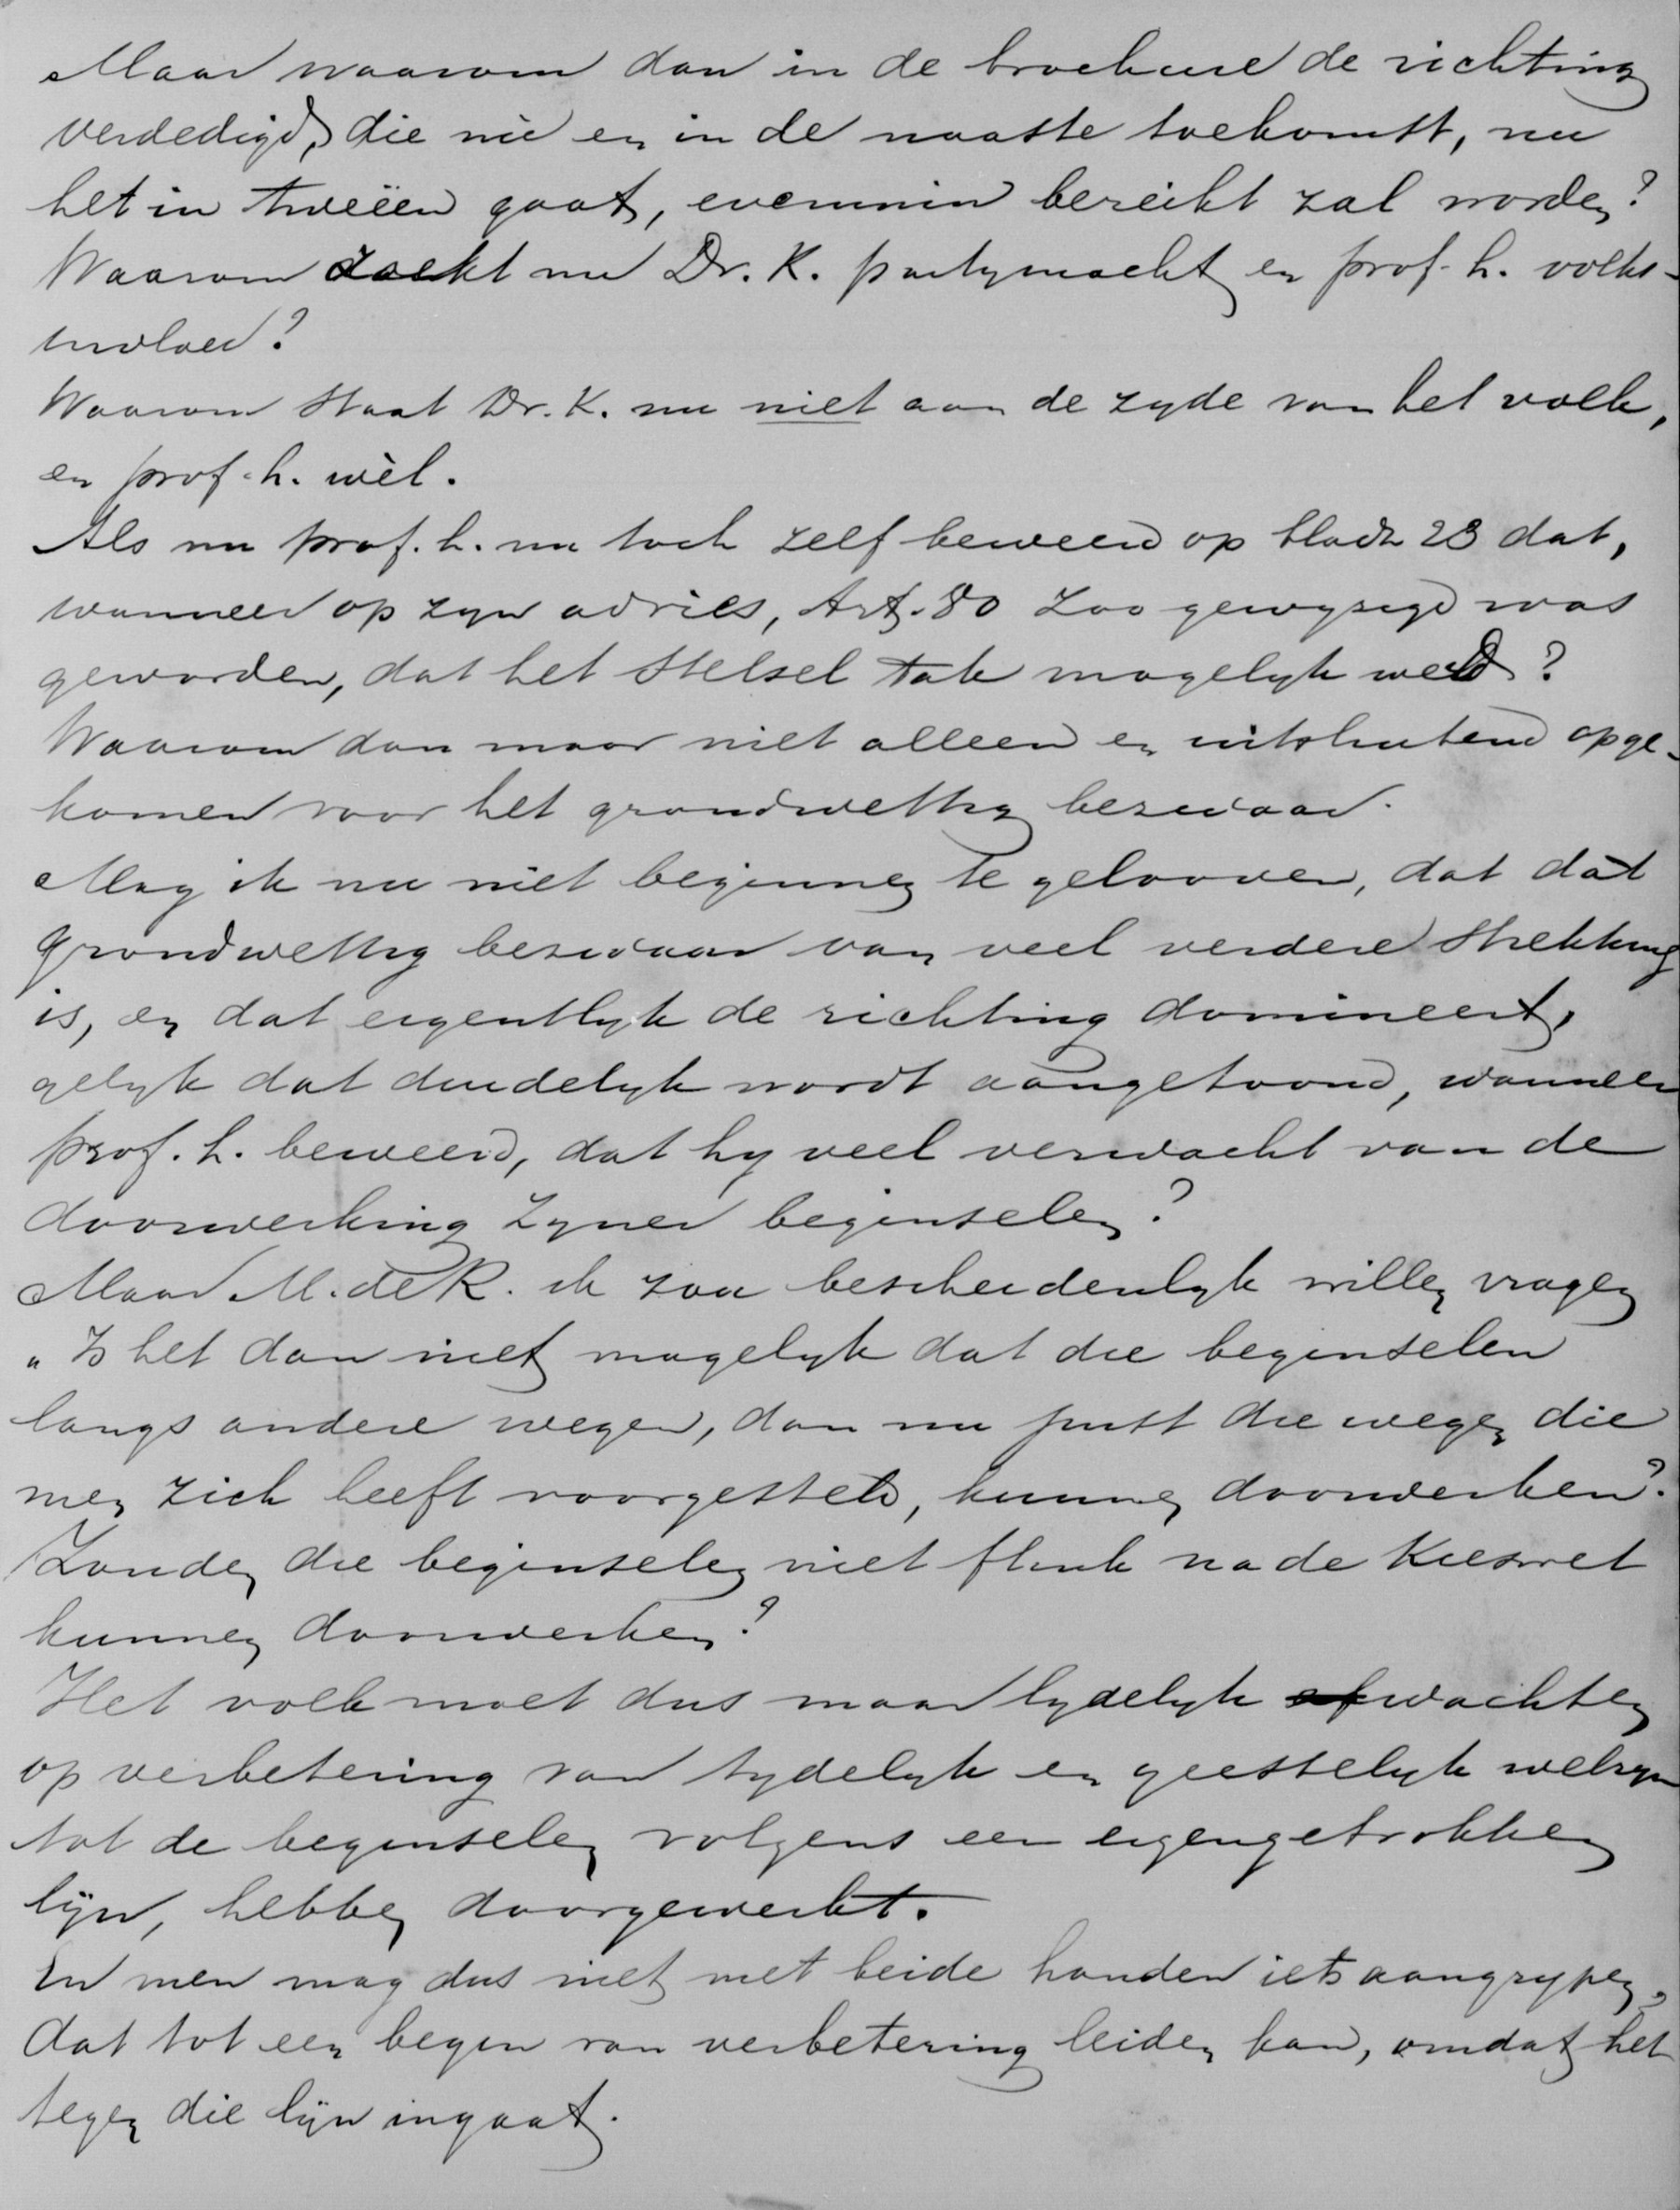 Maar waarom dan in de brochure de richting
verdedigd, die nu en in de naaste toekomst, nu
het in tweëen gaat, evenmin bereikt zal worden?
Waarom zoekt nu Dr. K. partymacht en prof. L. volks-
invloed?
Waarom staat Dr. K. nu niet aan de zyde van het volk,
en prof. L. wèl.
Als nu prof. L. nu toch zelf beweerd op bladz 23 dat,
wanneer op zyn advies, Art. 80 zoo gewyzigd was
geworden, dat het stelsel Tak mogelyk werd?
Waarom dan maar niet alleen en uitsluitend opge-
komen voor het grondwettig bezwaar.
Mag ik nu niet beginnen te gelooven, dat dàt
grondwettig bezwaar van veel verdere strekking
is, en dat eigentlyk de richting domineert,
gelyk dat duidelyk wordt aangetoond, wanneer
prof. L. beweerd, dat hy veel verwacht van de
doorwerking zyner beginselen?
Maar M. de R. ik zou bescheidenlyk willen vragen
„Is het dan niet mogelyk dat die beginselen
langs andere wegen, dan nu juist die wegen die
men zich heeft voorgesteld, kunnen doorwerken?
Zouden die beginselen niet flink na de Kieswet
kunnen doorwerken?
Het volk moet dus maar lydelyk afwachten
op verbetering van tydelyk en geestelyk welzyn
tot de beginselen volgens een eigengetrokken
lijn, hebben doorgewerkt.
En men mag dus niet met beide handen iets aangrypen,
dat tot een begin van verbetering leiden kan, omdat het
tegen die lijn ingaat.